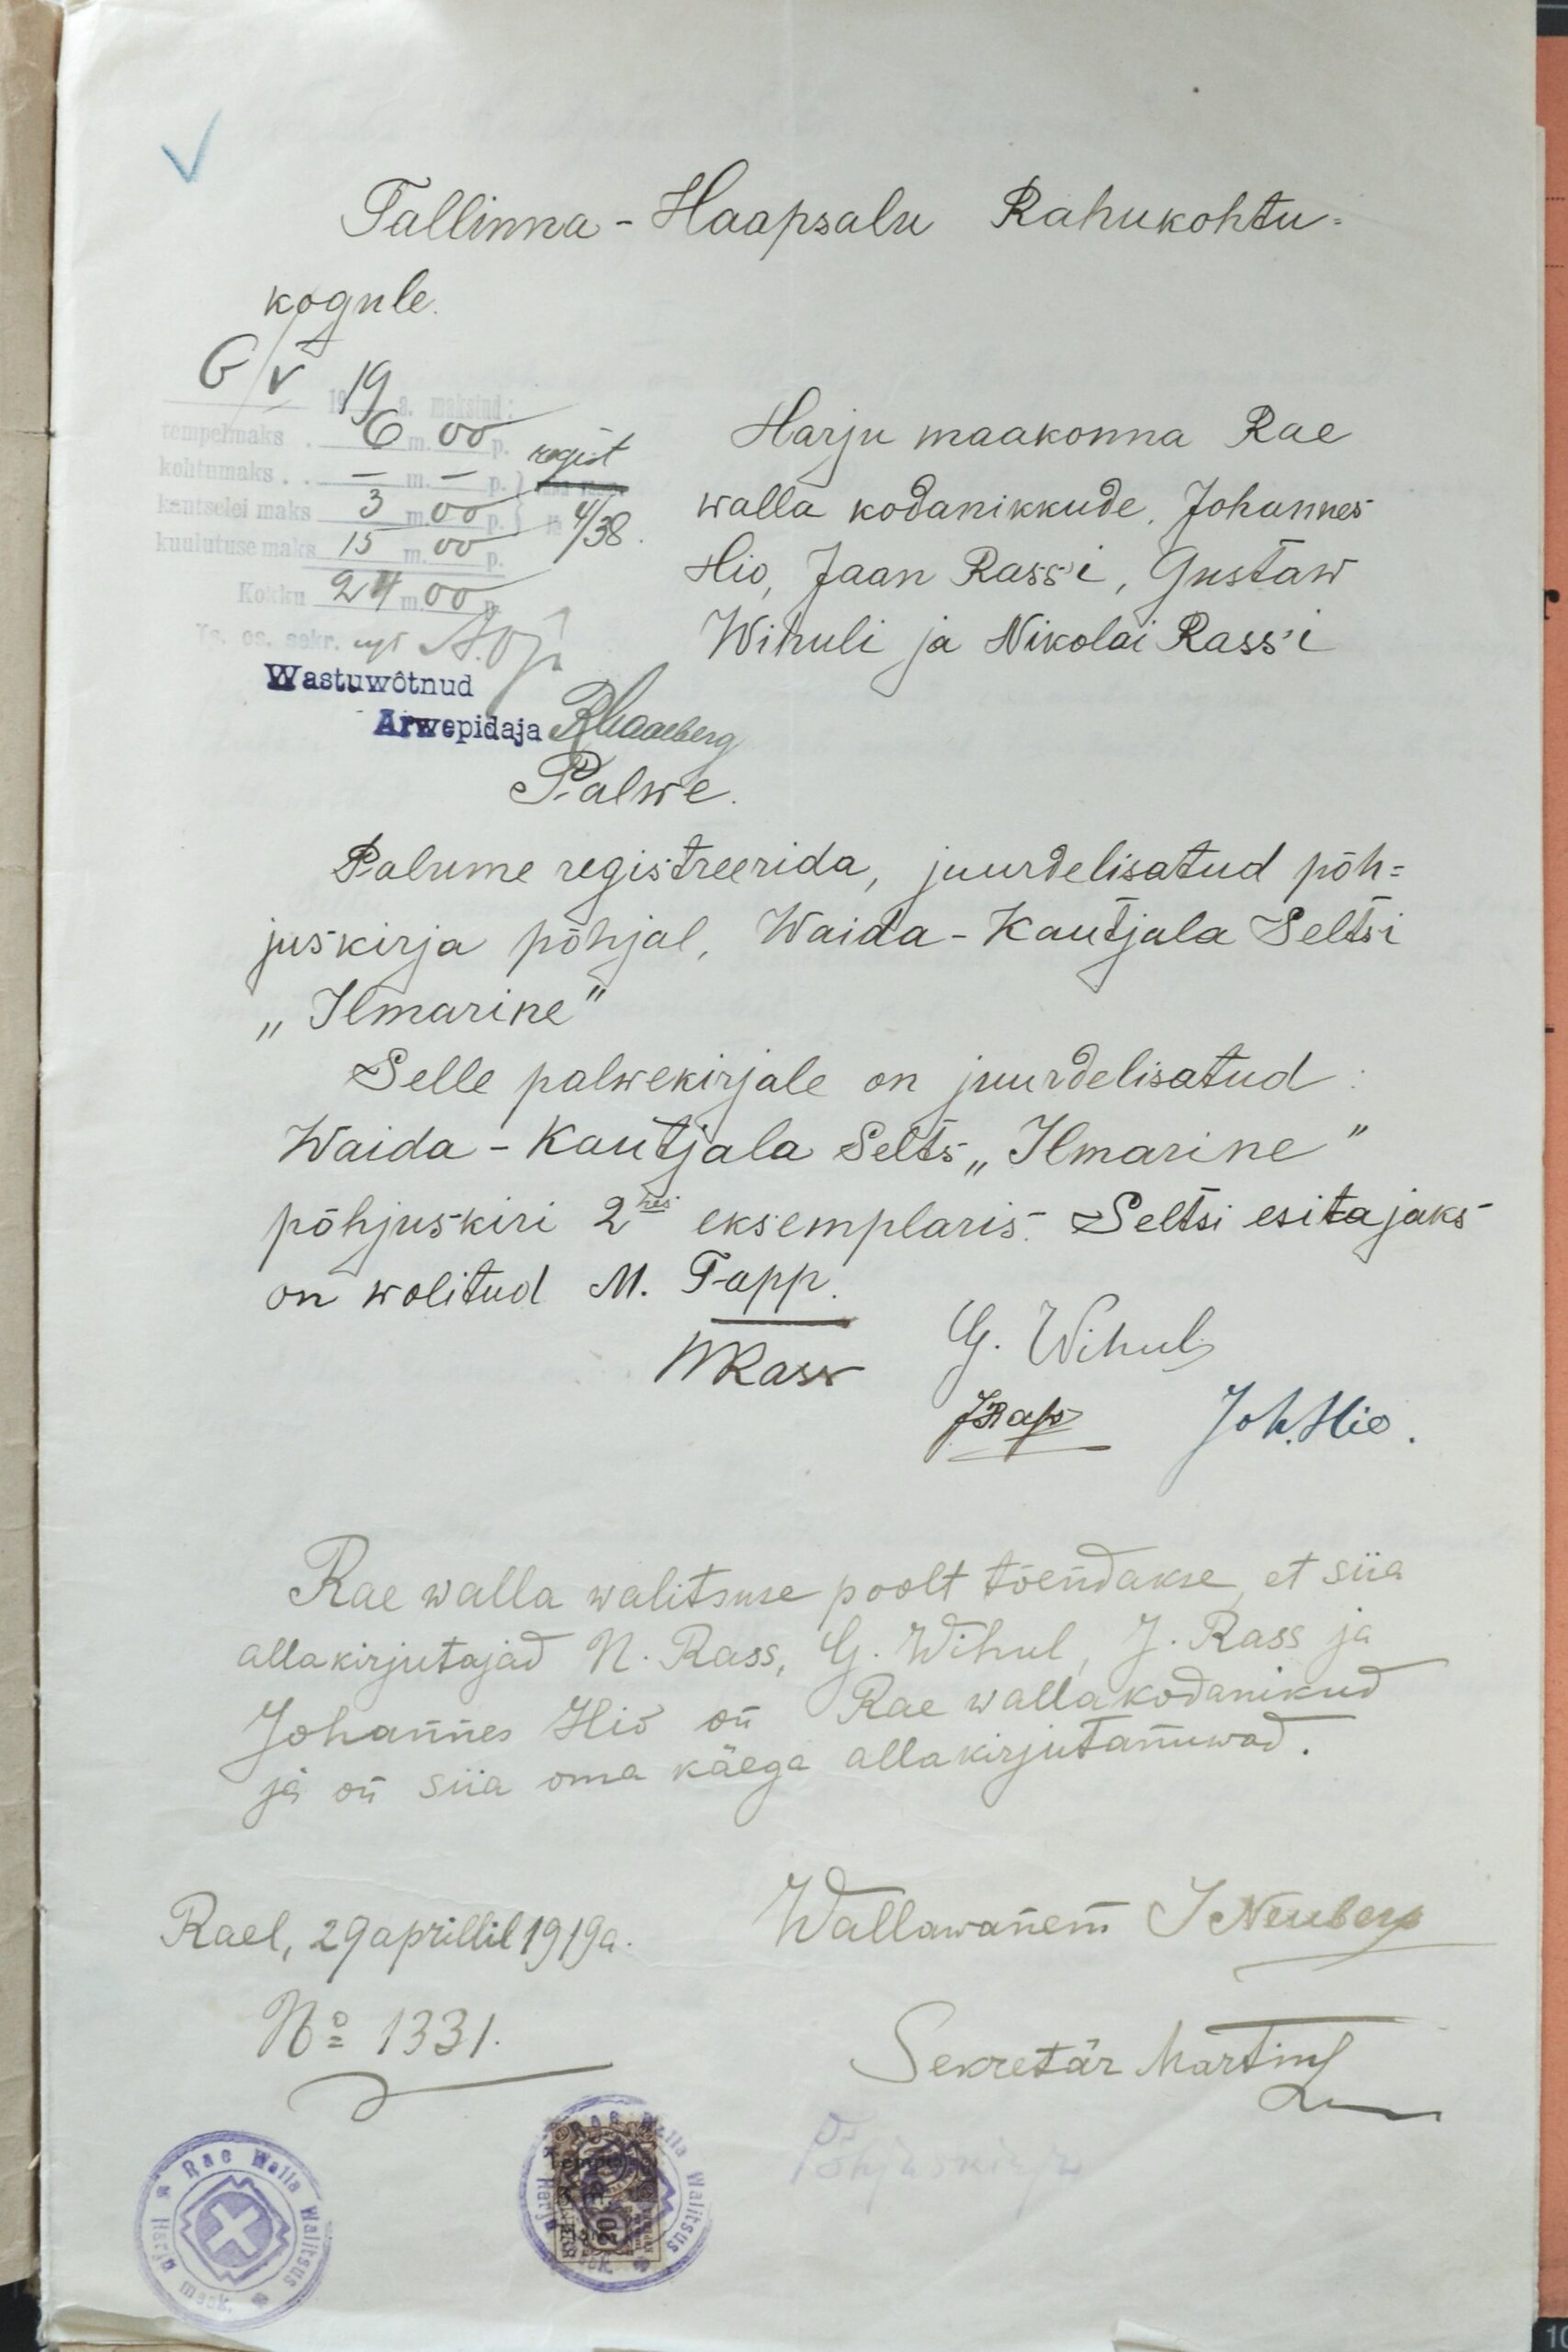 Tallinna - Haapsalu Rahukohtu=
kogule.
6/V 19 19 a. makstud:
tempelmaks . 6 m. 00 p.
kohtumaks . . — m. — p. regist
kantselei maks 3 m. 00 p. 4/38.
kuulutuse maks 15 m. 00 p.
Kokku 24 m. 00 p.
Wastuwõtnud
Arwepidaja
Harju maakonna Rae
walla kodanikkude, Johannes
Hio, Jaan Rassi, Gustaw
Wihuli ja Nikolai Rassi
Palwe.
Palume registreerida, juurdelisatud põh=
juskirja põhjal, Waida - Kautjala Seltsi
„Ilmarine"
Selle palwekirjale on juurdelisatud:
Waida - Kautjala Selts „Ilmarine"
põhjuskiri 2hes eksemplaris. Seltsi esitajaks
on wolitud M. Tapp.
NRass G. Wihul
JRass Joh. Hio.
Rae walla walitsuse poolt tõendakse, et siia
allakirjutajad N. Rass, G. Wihul, J. Rass ja
Johannes Hio on Rae walla kodanikud
ja on siia oma käega allakirjutanuwad.
Rael, 29 aprillil 1919 a.
Wallawanem J Neuberg
No 1331.
Sekretär Martin
Põhjuskirja
Rae Walla Walitsus * Harju
Rae Walla Walitsus * Harju